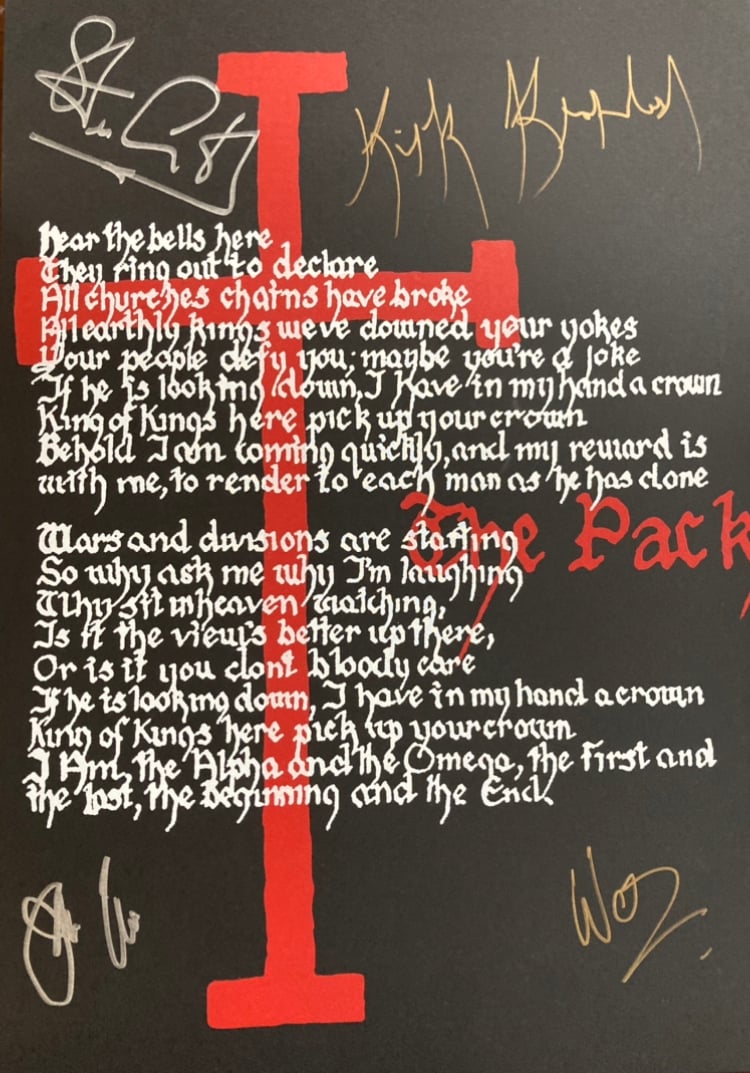 Kirk Brandon
Hear the bells here
They ring out to declare
All churches chains have broke
All earthly kings weve downed your yokes
Your people defy you; maybe you're a joke
If he is looking down, I have in my hand a crown
King of Kings here pick up your crown
Behold I am coming quickly, and my reward is
with me, to render to each man as he has done
The Pack
Wars and divisions are starting
So why ask me why I'm laughing
Why sit in heaven watching,
Is it the view's better up there,
Or is it you dont bloody care
If he is looking down, I have in my hand a crown
King of Kings here pick up your crown
I Am, the Alpha and the Omega, the first and
the last, the beginning and the End.